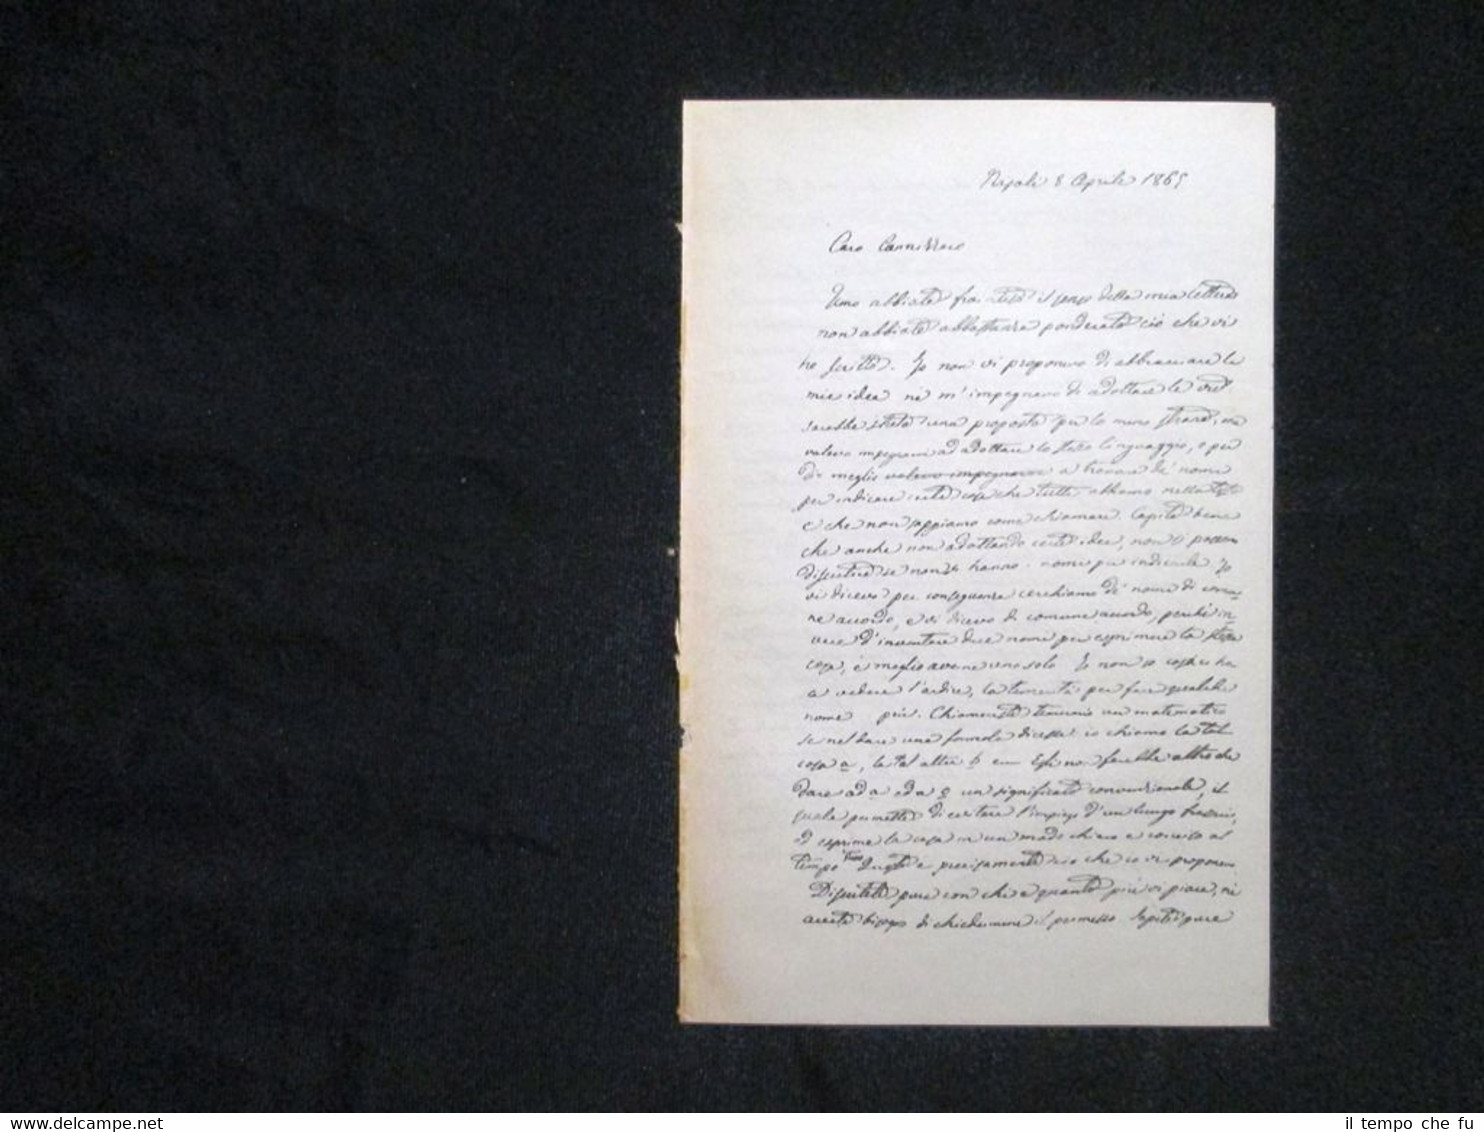 Napoli 8 Aprile 1865
Caro Cannizzaro
abbiate il senso della mia lettera
non abbiate abbastanza ponderato ciò che vi
ho scritto. Io non vi proponevo di abbracciare le
mie idee nè m'impegnavo di adottare le
sarebbe stata una proposta per lo meno strana, ma
volevo impegnarvi ad adottare lo stesso linguaggio, o per
dir meglio volevo impegnarvi a trovare de' nomi
per indicare certe cose che tutti abbiamo nella testa
e che non sappiamo come chiamare. Capite bene
che anche non adottando certe idee, non si possono
discutere se non si hanno nomi per indicarle. Io
vi dicevo per conseguenza cerchiamo de' nomi di comu-
ne accordo, e vi dicevo di comune accordo, perchè in
vece d'inventare due nomi per esprimere la stessa
cosa, è meglio averne uno solo. Io non so cosa ci ha
a vedere l'ardire, la temerità per fare qualche
nome più. Chiamereste temerario un matematico
se nel dare una formola dicesse: io chiamo la tal
cosa a, la tal altra b Esso non farebbe altro che
dare ad a ed a b un significato convenzionale, il
quale permette di evitare l'impiego d'un lungo frasario,
ed esprime la cosa in un modo chiaro e conciso al
tempo Questo è precisamente ciò che io vi proponevo
Discutete pure con chi e quanto più vi piace, nè
avete bisogno di chiedermene il permesso pure
il tempo che fu